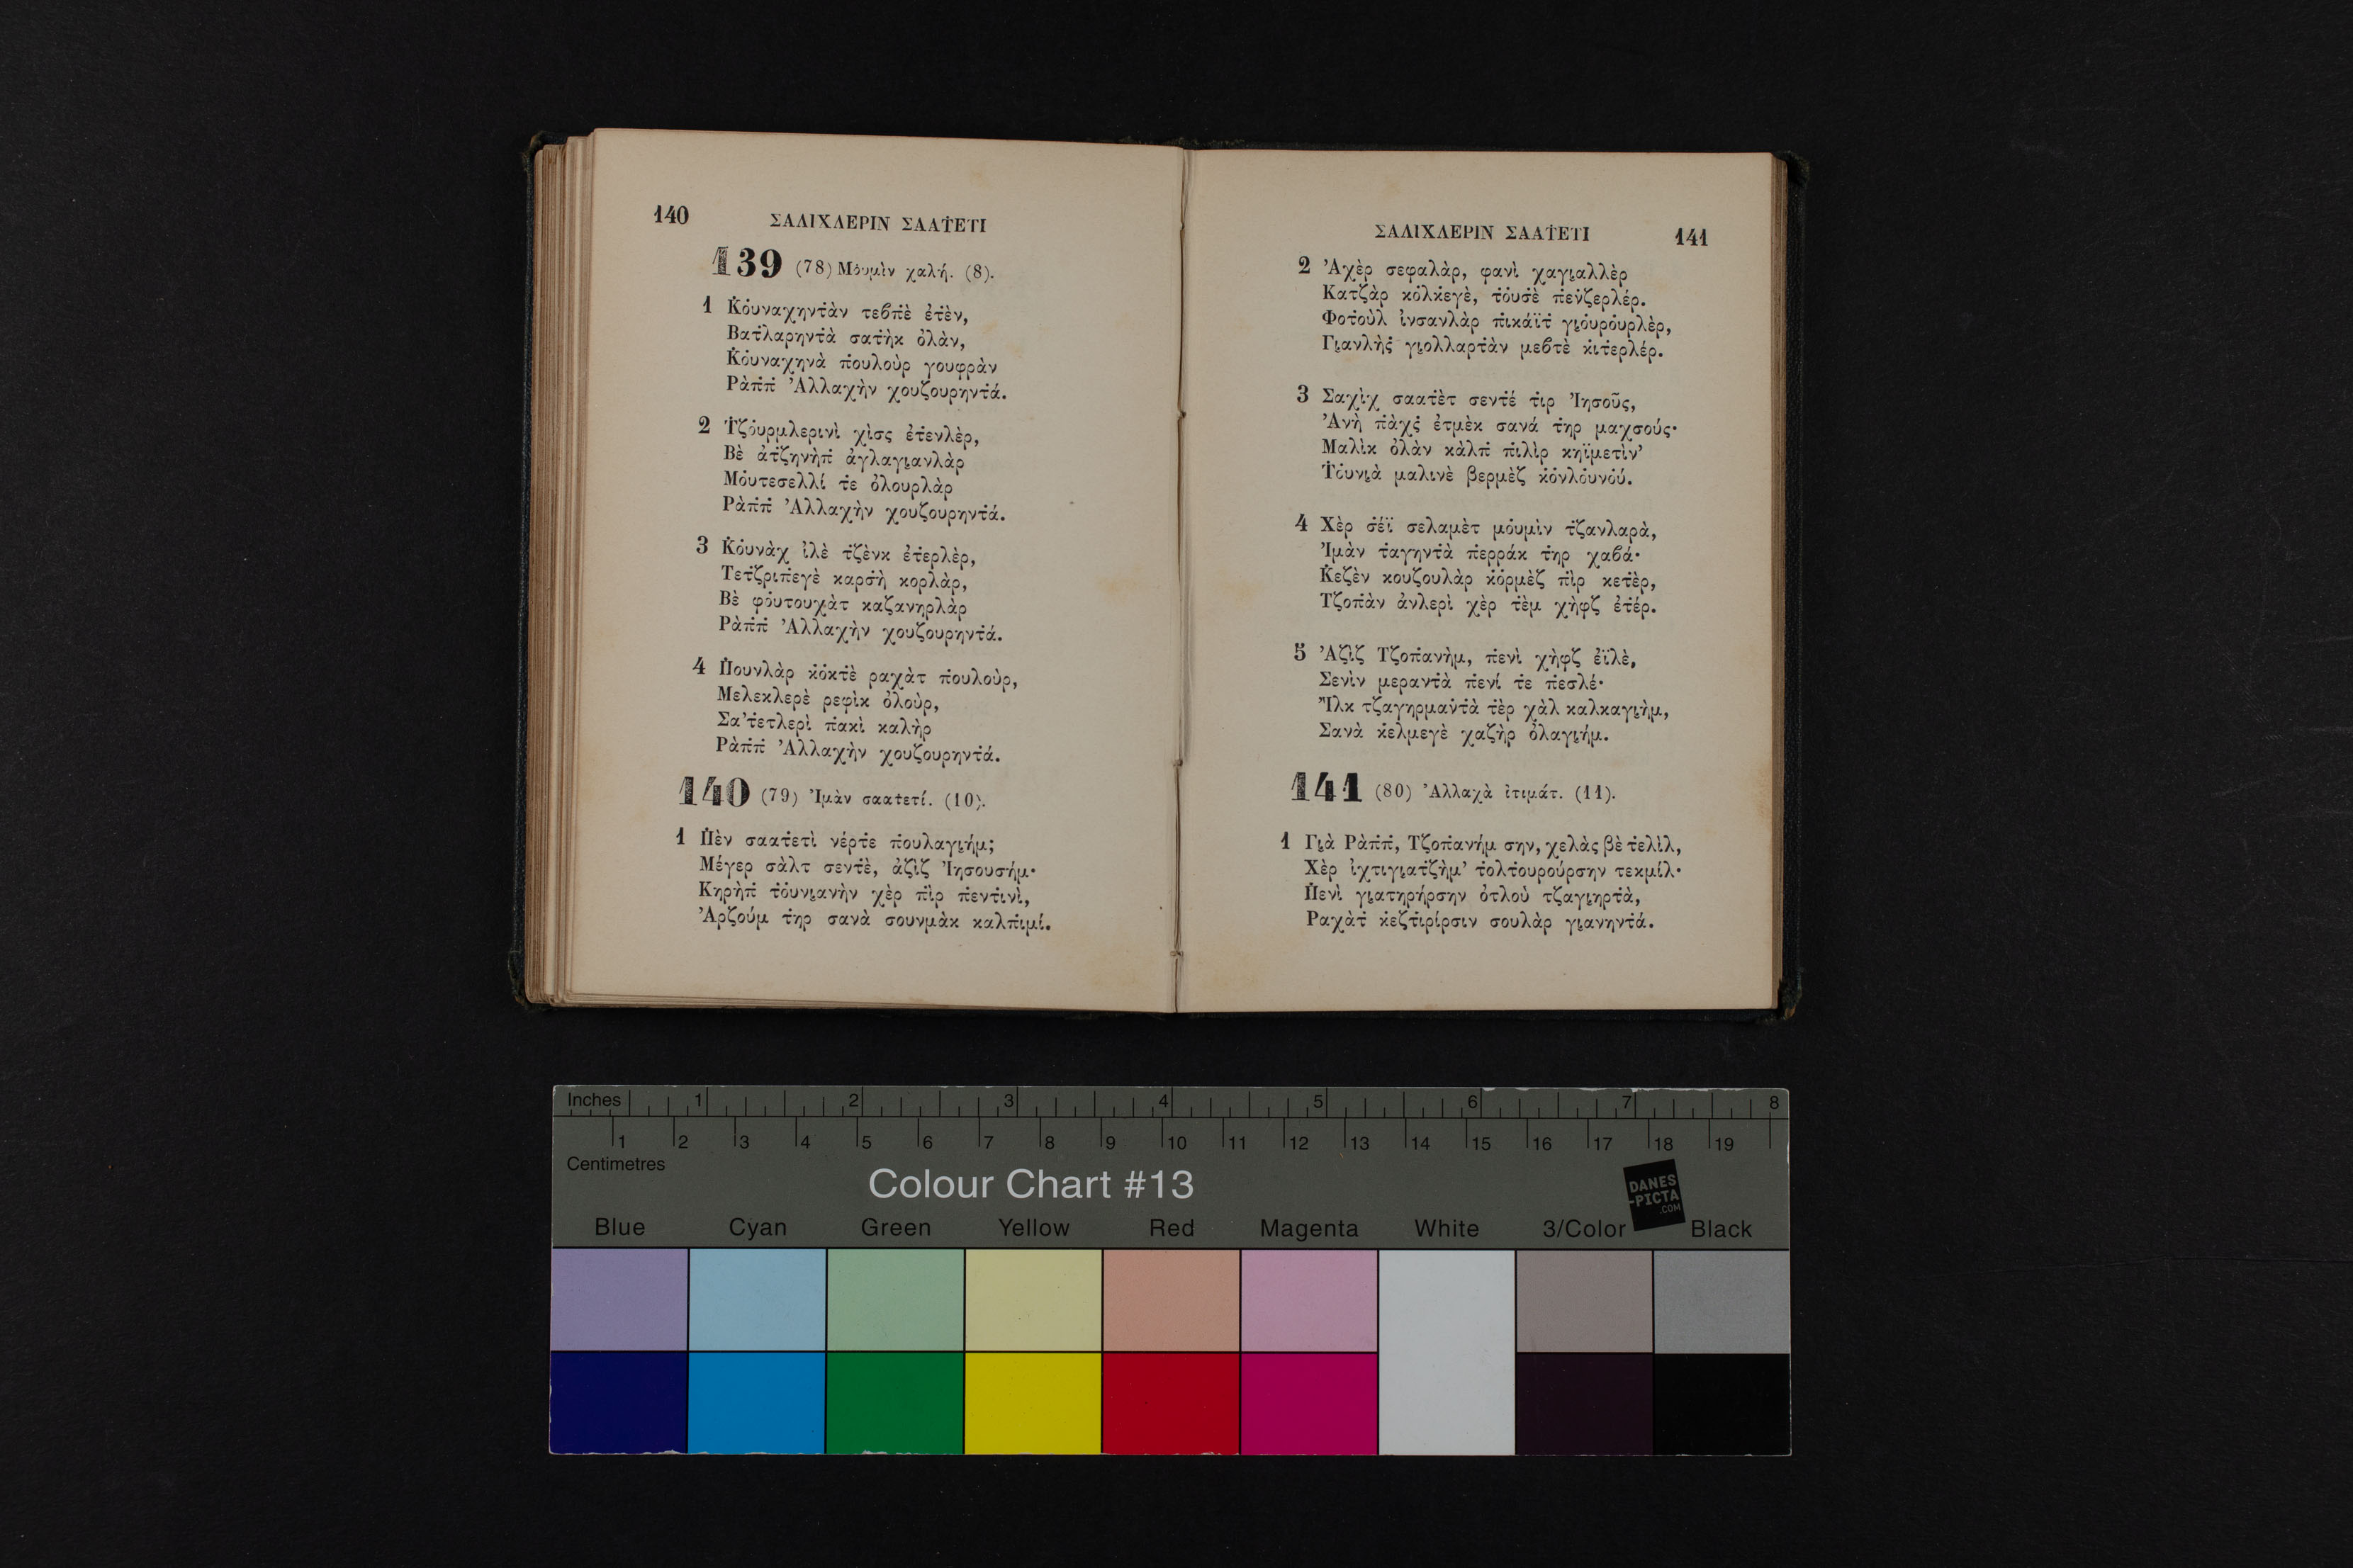 140
ΣΑΛΙΧΛΕΡΙΝ ΣΑΑṪΕΤΙ
139 (78) Μȯυμὶν χαλή. (8).
1 Κ̇ȯυναχηντ̇ὰν τεϐπ̇ὲ ἐτ̇ὲν,
Βατ̇λαρηντ̇ὰ σατ̇ὴκ ὀλὰν,
Κ̇ȯυναχηνὰ π̇ουλοὺρ γουφρὰν
Ρὰπ̇π̇ Ἀλλαχὴν χουζουρηντ̇ά.
2 Τ̇ζȯυρμλερινὶ χὶσς ἐτ̇ενλὲρ,
Βὲ ἀτ̇ζηνὴπ̇ ἀγλαγι̱ανλὰρ
Μȯυτεσελλί τ̇ε ὀλουρλὰρ
Ρὰπ̇π̇ Ἀλλαχὴν χουζουρηντ̇ά.
3 Κ̇ȯυνὰχ ἰλὲ τ̇ζὲνκ ἐτ̇ερλὲρ,
Τετ̇ζριπ̇εγὲ καρσ̇ὴ κορλὰρ,
Βὲ φȯυτουχὰτ καζανηρλὰρ
Ρὰπ̇π̇ Ἀλλαχὴν χουζουρηντ̇ά.
4 Π̇ουνλὰρ κ̇ȯκτ̇ὲ ραχὰτ π̇ουλοὺρ,
Μελεκλερὲ ρεφὶκ ὀλοὺρ,
Σα’τ̇ετλερὶ π̇ακὶ καλὴρ
Ρὰπ̇π̇ Ἀλλαχὴν χουζουρηντ̇ά.
140 (79) Ἰμὰν σαατετί. (10).
1 Π̇ὲν σαατ̇ετὶ νέρτ̇ε π̇ουλαγι̱ήμ;
Μέγερ σὰλτ σεντ̇ὲ, ἀζὶζ Ἰησουσήμ·
Κηρὴπ̇ τ̇ȯυνι̱ανὴν χὲρ π̇ὶρ π̇εντ̇ινὶ,
Ἀρζούμ τ̇ηρ σανὰ σουνμὰκ καλπ̇ιμί.
ΣΑΛΙΧΛΕΡΙΝ ΣΑΑṪΕΤΙ
141
2 Ἀχὲρ σεφαλὰρ, φανὶ χαγι̱αλλὲρ
Κατζὰρ κ̇ȯλκ̇εγὲ, τ̇ȯυσ̇ὲ π̇ενζερλέρ.
Φοτ̇οὺλ ἰνσανλὰρ π̇ικάϊτ̇ γι̱ȯυρȯυρλὲρ,
Γι̱ανλὴς̇ γι̱ολλαρτ̇ὰν μεϐτ̇ὲ κ̇ιτ̇ερλέρ.
3 Σαχὶχ σαατ̇ὲτ σεντ̇έ τ̇ιρ Ἰησοῦς,
Ἀνὴ π̇ὰχς̇ ἐτμὲκ σανά τ̇ηρ μαχσούς·
Μαλὶκ ὀλὰν κὰλπ̇ π̇ιλὶρ κηϊμετὶν’
Τ̇ȯυνι̱ὰ μαλινὲ βερμὲζ κ̇ȯνλȯυνού.
4 Χὲρ σ̇έϊ σελαμὲτ μȯυμὶν τ̇ζανλαρὰ,
Ἰμὰν τ̇αγηντ̇ὰ π̇ερράκ τ̇ηρ χαϐά·
Κ̇εζὲν κουζουλὰρ κ̇ȯρμὲζ π̇ὶρ κετ̇ὲρ,
Τζοπ̇ὰν ἀνλερὶ χὲρ τ̇ὲμ χὴφζ ἐτ̇έρ.
5 Ἀζὶζ Τζοπ̇ανὴμ, π̇ενὶ χὴφζ ἐϊλὲ,
Σενὶν μεραντ̇ὰ π̇ενί τ̇ε π̇εσλέ·
Ἲλκ τζαγηρμαντ̇ὰ τ̇ὲρ χὰλ καλκαγι̱ὴμ,
Σανὰ κ̇ελμεγὲ χαζὴρ ὀλαγι̱ήμ.
141 (80) Ἀλλαχὰ ἰτιμάτ. (11).
1 Γι̱ὰ Ρὰπ̇π̇, Τζοπ̇ανήμ σην, χελὰς βὲ τ̇ελὶλ,
Χὲρ ἰχτιγι̱ατ̇ζὴμ’ τ̇ολτ̇ουρούρσην τεκμίλ·
Π̇ενὶ γι̱ατηρήρσην ὀτλοὺ τζαγι̱ηρτ̇ὰ,
Ραχὰτ̇ κ̇εζτ̇ιρίρσιν σουλὰρ γι̱ανηντ̇ά.
Inches 1 2 3 4 5 6 7 8
1 2 3 4 5 6 7 8 9 10 11 12 13 14 15 16 17 18 19
Centimetres
Colour Chart #13
DANES
-PICTA
.COM
Blue Cyan Green Yellow Red Magenta White 3/Color Black